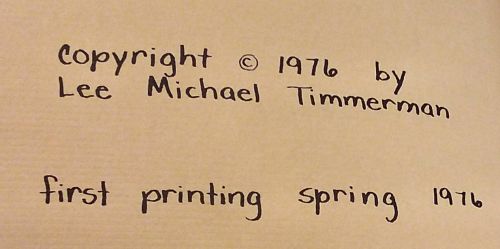 Copyright © 1976 by
Lee Michael Timmerman
first printing spring 1976